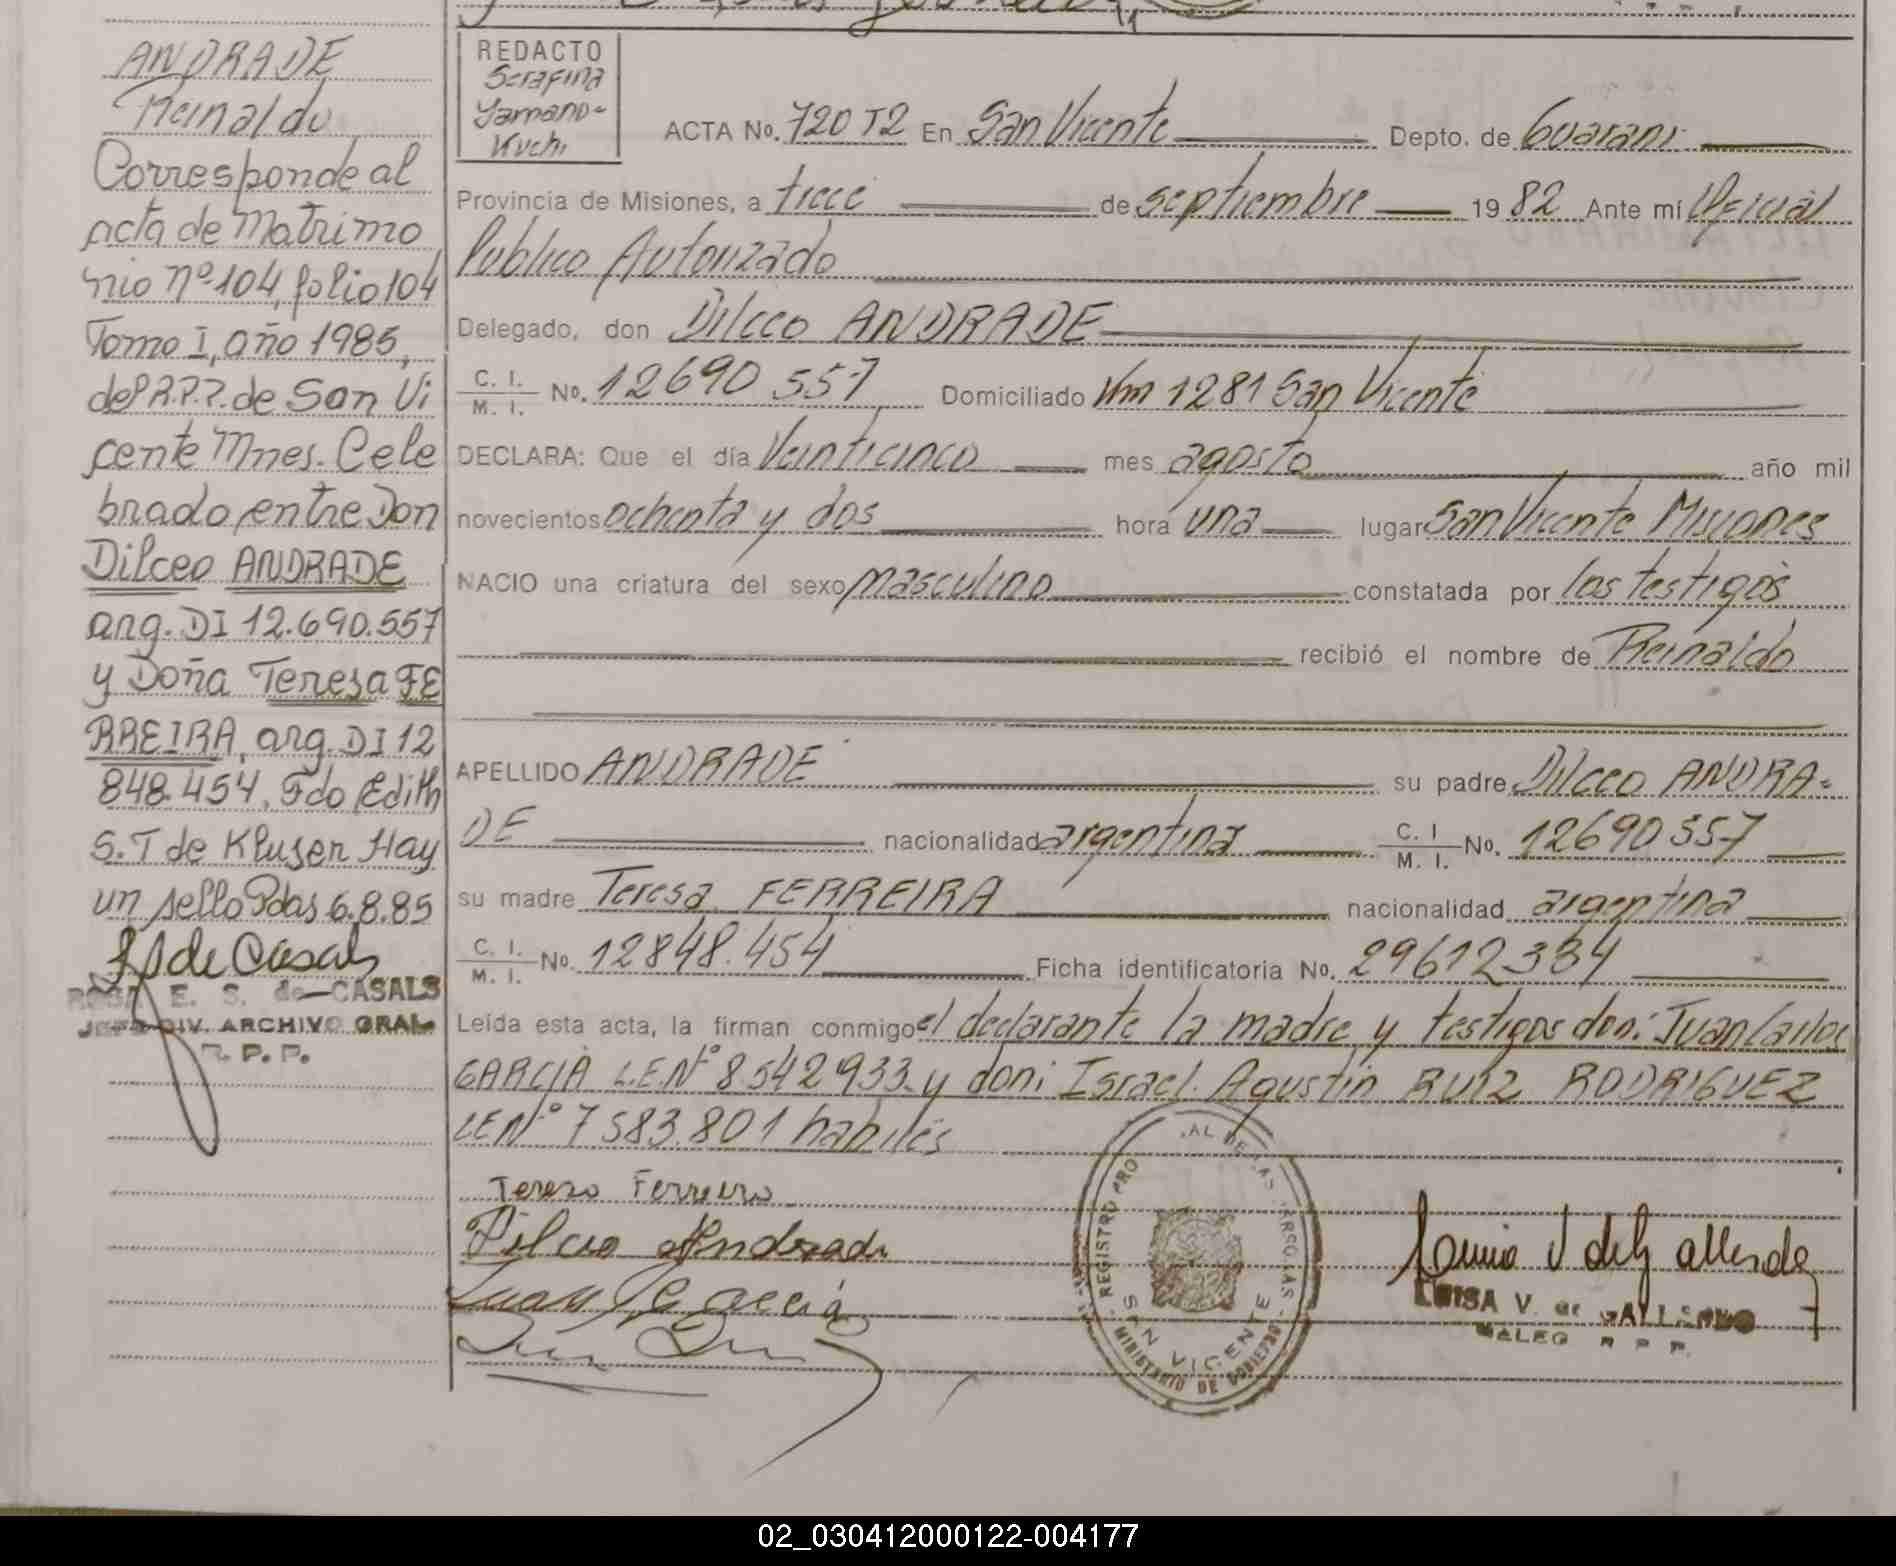 ANDRADE
Reinaldo
Corresponde al
acta de Matrimo
nio nº 104, folio 104
Tomo I, año 1985,
del R.P.P. de San Vi
cente Mnes. Cele
brado entre Don
Dilceo ANDRADE
arg. DI 12.690.557
y Doña Teresa FE
RREIRA, arg. DI 12
848.454, Fdo Edith
S. T de Klusen Hay
un sello Pdas 6.8.85
ROSA E. S. de CASALS
JEFE DIV. ARCHIVO GRAL
R. P. P.
REDACTO
Serafina
Yamano-
Kuchi
ACTA No. 720 T2 En San Vicente Depto. de Guarani
Provincia de Misiones, a trece de septiembre 19 82 Ante mí Oficial
Publico Autorizado
Delegado, don Dilceo ANDRADE
C. I. / M. I. No. 12690 557 Domiciliado Km 1281 San Vicente
DECLARA: Que el día Veinticinco mes agosto año mil
novecientos ochenta y dos hora una lugar San Vicente Misiones
NACIO una criatura del sexo masculino constatada por los testigos
recibió el nombre de Reinaldo
APELLIDO ANDRADE su padre Dilceo ANDRA-
DE nacionalidad argentina C. I / M. I. No. 12690 557
su madre Teresa FERREIRA nacionalidad argentina
C. I. / M. I. No. 12848.454 Ficha identificatoria No. 29612334
Leída esta acta, la firman conmigo el declarante la madre y testigos don: Juan Carlos
GARCIA L.E.Nº 8542933 y don: Israel Agustin RUIZ RODRIGUEZ
LE Nº 7583.801 habiles
Teresa Ferreira
Dilceo Andrade
Juan C Garcia
REGISTRO PRO AL DE LAS PERSONAS
SAN VICENTE
MINISTERIO DE GOBIERNO
LUISA V. de GALLARDO
R P P.
02_030412000122-004177